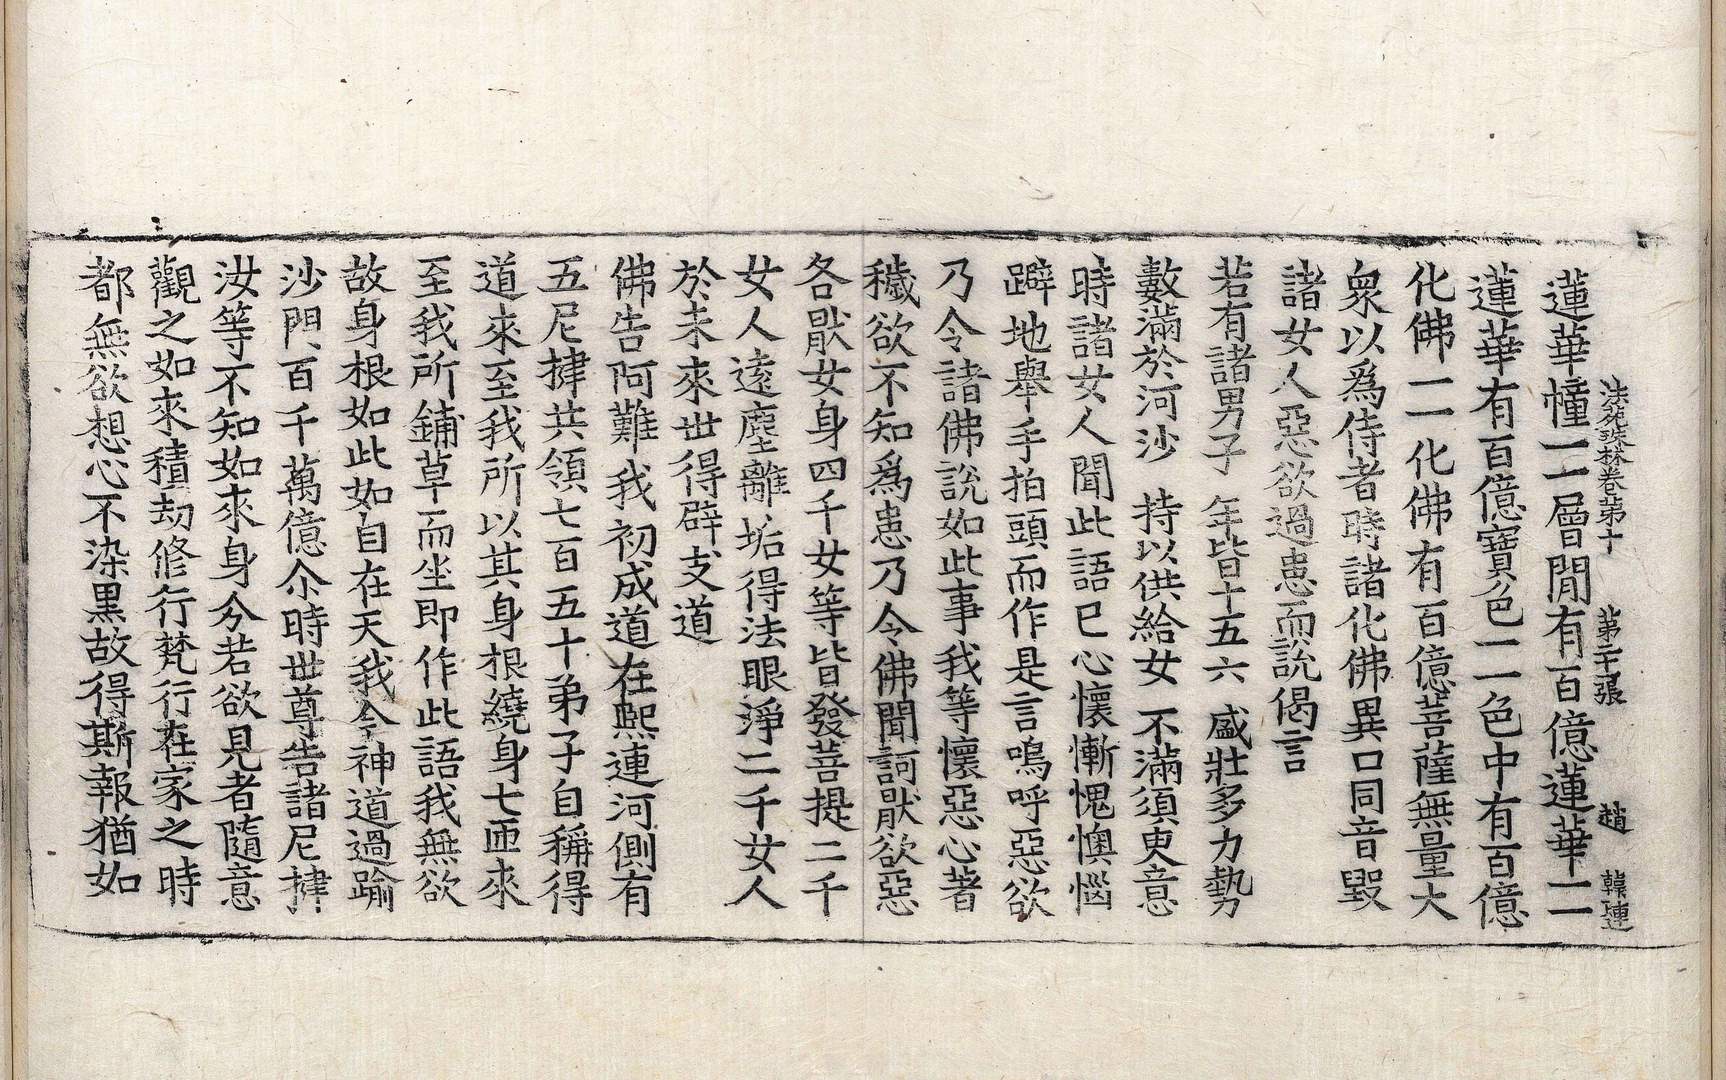 法苑珠林卷第十 第二十張 趙 韓連
蓮華幢一一層閒有百億蓮華一一
蓮華有百億寶色一一色中有百億
化佛一一化佛有百億菩薩無量大
眾以爲侍者時諸化佛異口同音毀
諸女人惡欲過患而說偈言
若有諸男子 年皆十五六 盛壯多力勢
數滿於河沙 持以供給女 不滿須臾意
時諸女人聞此語已心懷慚愧懊惱
躃地舉手拍頭而作是言嗚呼惡欲
乃令諸佛說如此事我等懷惡心著
穢欲不知爲患乃令佛聞訶猒欲惡
各猒女身四千女等皆發菩提二千
女人遠塵離垢得法眼淨二千女人
於未來世得辟支道
佛告阿難我初成道在熙連河側有
五尼揵共領七百五十弟子自稱得
道來至我所以其身根繞身七匝來
至我所鋪草而坐即作此語我無欲
故身根如此如自在天我今神道過踰
沙門百千萬億尒時世尊告諸尼揵
汝等不知如來身分若欲見者隨意
觀之如來積劫修行梵行在家之時
都無欲想心不染黑故得斯報猶如